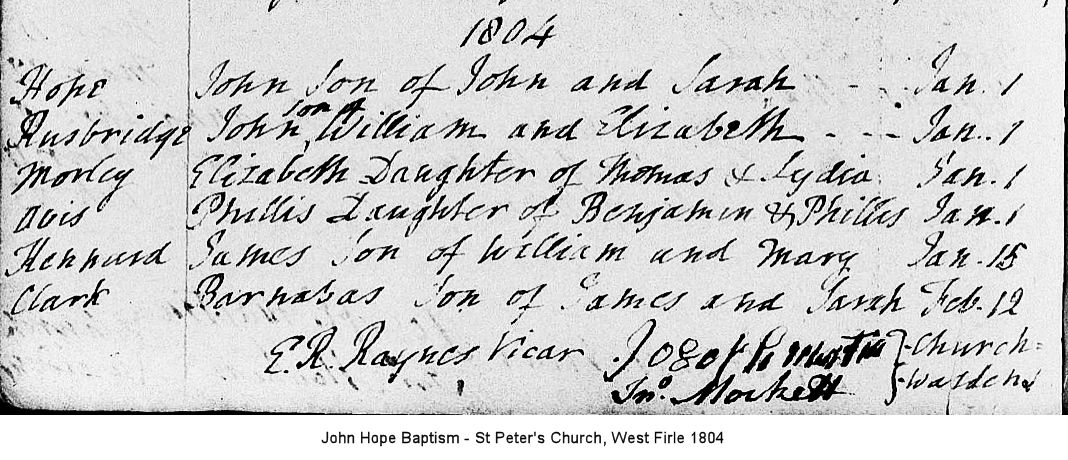 1804
Hope John Son of John and Sarah - - Jan. 1
Rusbridge John son of William and Elizabeth - - - Jan. 1
Morley Elizabeth Daughter of Thomas & Lydia Jan. 1
Avis Phillis Daughter of Benjamin & Phillis Jan. 1
Kennard James Son of William and Mary Jan. 15
Clark Barnabas Son of James and Sarah Feb. 12
E. R. Raynes Vicar Joseph Martin } Church-
Jno. Mockett } Wardens
John Hope Baptism - St Peter's Church, West Firle 1804